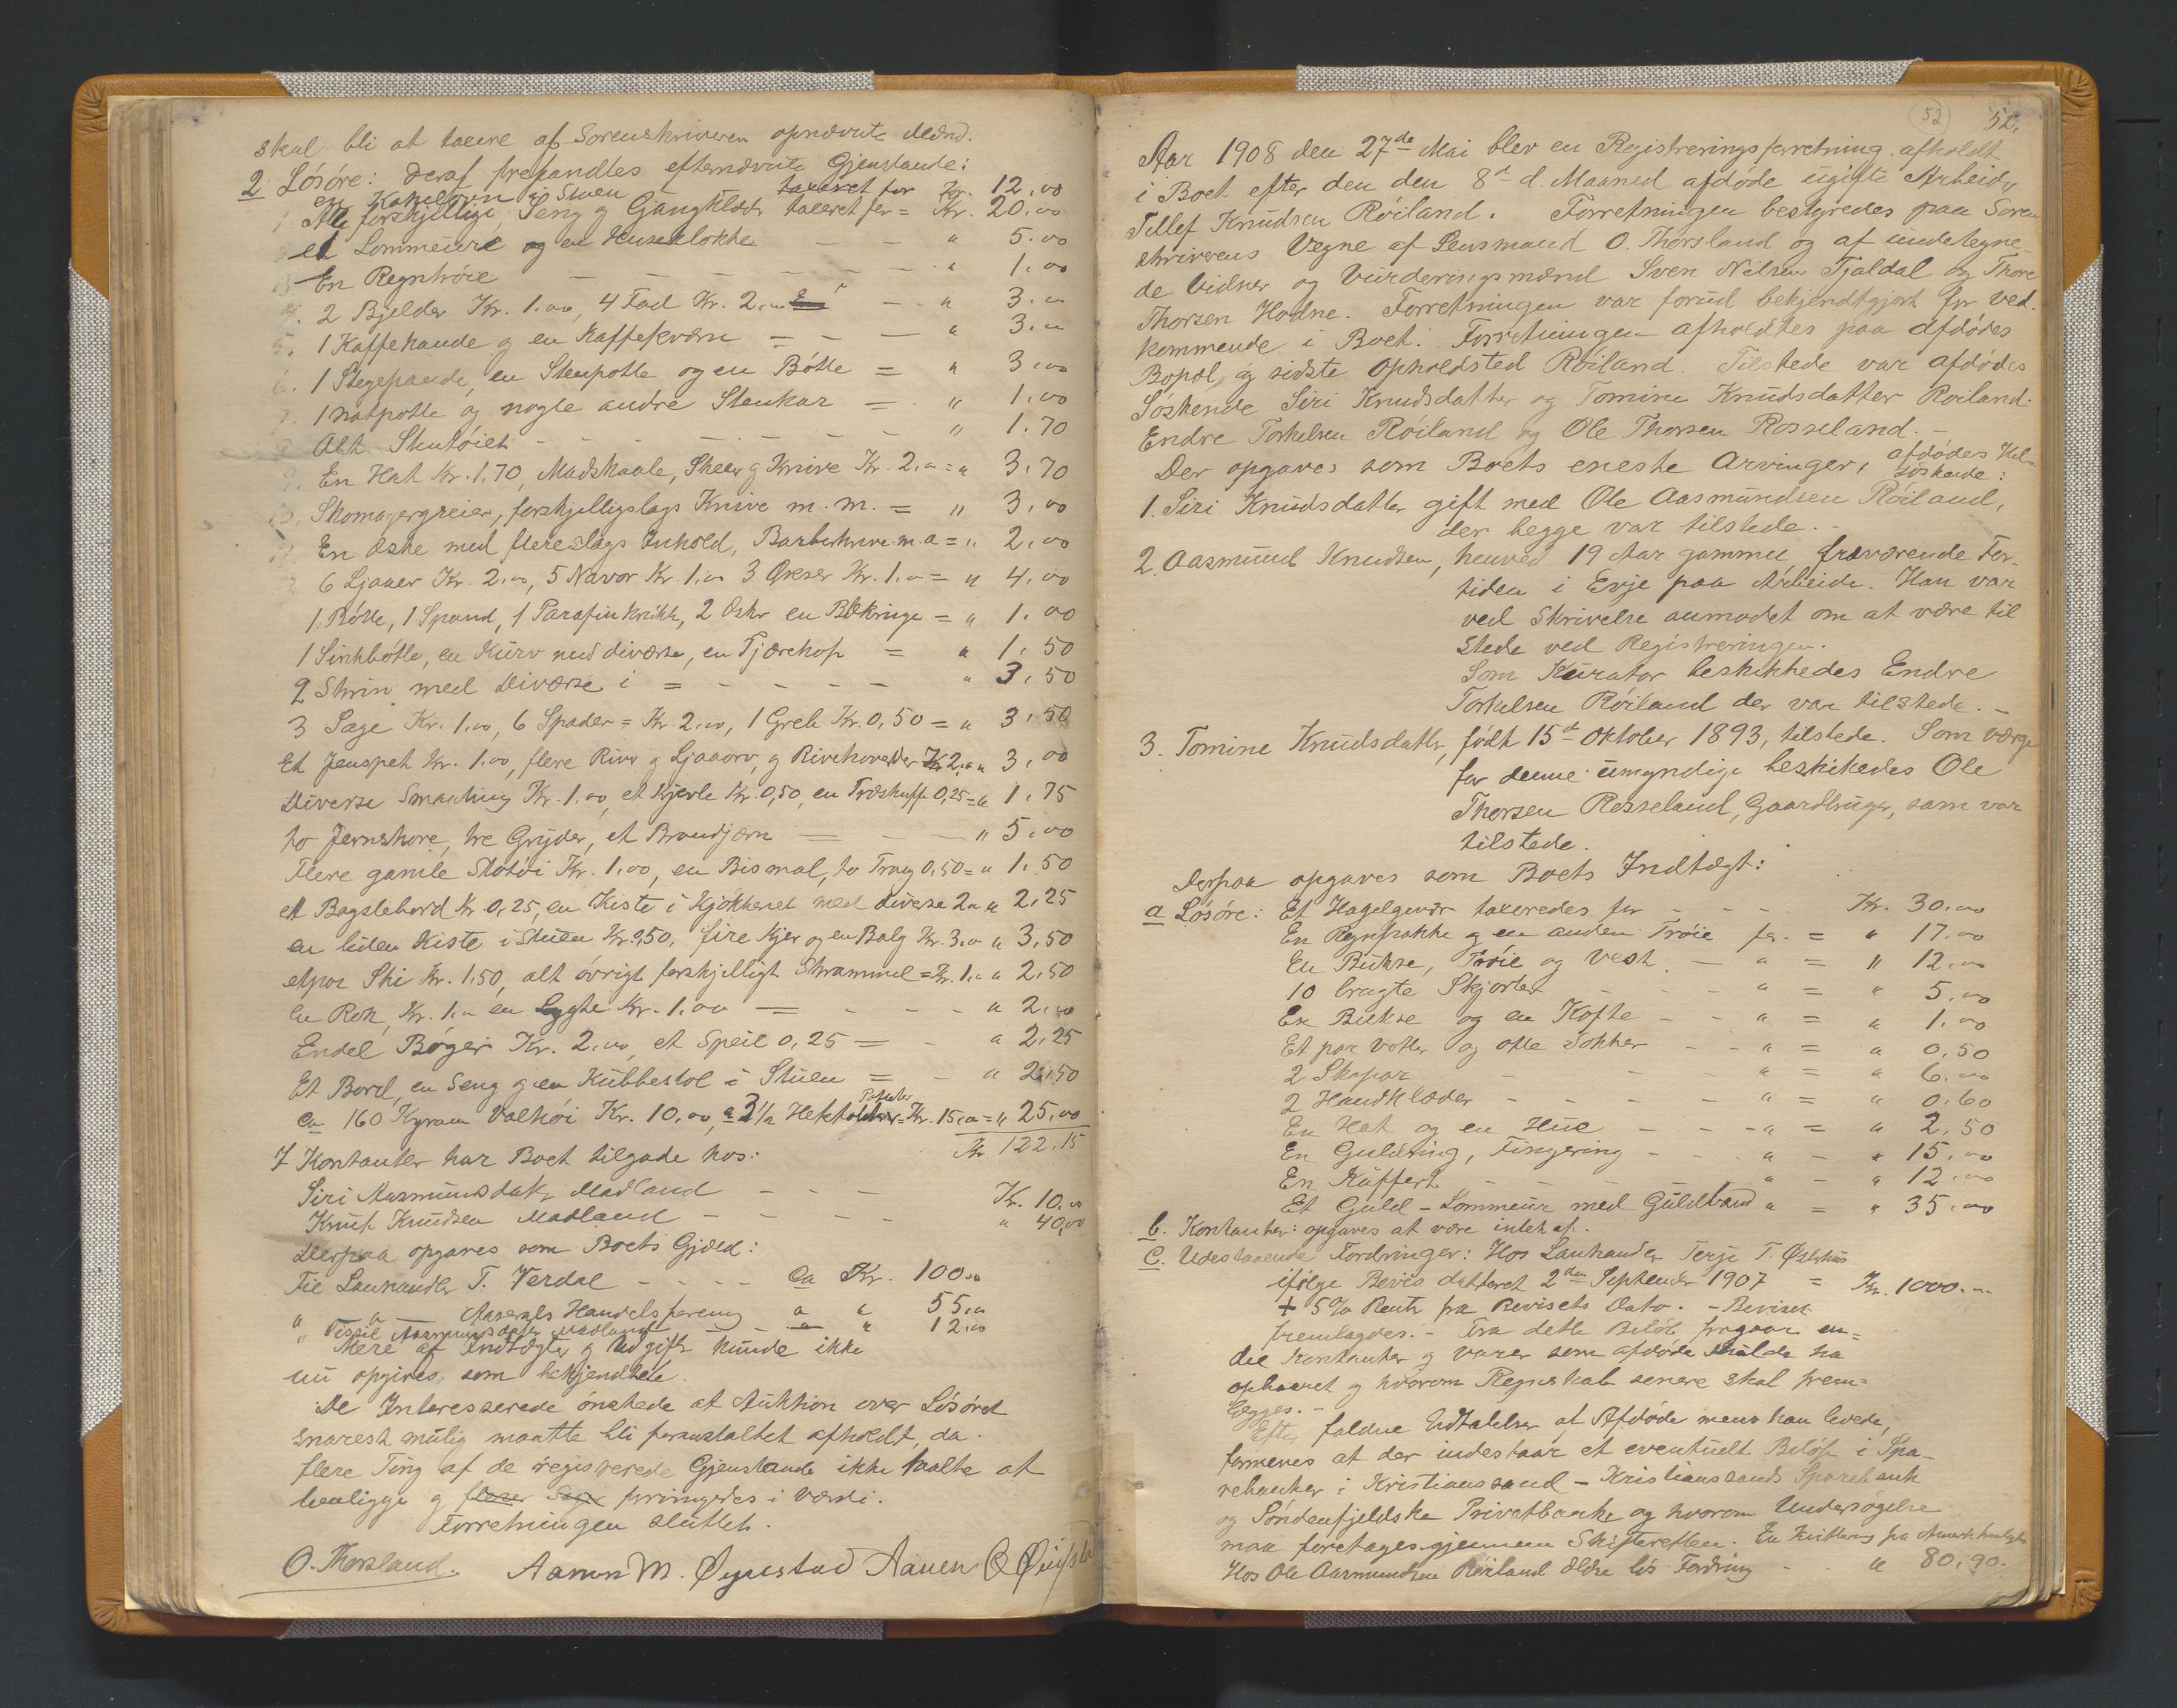 skal bli at taxere af Sorenskriveren opnævnte Mænd.
2 Løsøre: Deraf forefandtes efternævnte Gjenstande:
en Kakelovn i Stuen taxeret for Kr. 12,00
1. Alle forskjellige Seng og Gangklæder taxeret for = Kr. 20,00
2. et Lommeure og en Huseklokke — — " 5,00
3. En Regntrøie — — — — — " 1,00
4. 2 Bjelder Kr. 1,00, 4 Fad Kr. 2,00 — " 3,00
5. 1 Kaffekande og en Kaffekværn = — — " 3,00
6. 1 Stegepande, en Stenpotte og en Bøtte = " 3,00
7. 1 natpotte og nogle andre Stenkar = " 1,00
8. Alt Stentøiet - - - - - " 1,70
9. En Hat Kr. 1,70, Madskaale, Skeer og Knive Kr. 2,00 = " 3,70
10. Skomagergreier, forskjelligslags Knive m. m. = " 3,00
11. En Æske med flereslags Inhold, Barberknive m.a = " 2,00
12. 6 Ljaaer Kr. 2,00, 5 Navor Kr. 1,00 3 Økser Kr. 1,00 = " 4,00
1 Bøtte, 1 Spand, 1 Parafinkrukke, 2 Æsker en = " 1,00
1 Sinkbøtte, en Kurv med diverse, en Tjærekop = " 1,50
2 Skrin med Diverse i = - - - - " 3,50
3 Sage Kr. 1,00, 6 Spader = Kr. 2,00, 1 Greb Kr. 0,50 = " 3,50
Et Jenspet Kr. 1,00, flere River og Ljaaorv, og Rivehoveder Kr 2,00 " 3,00
Diverse Smaating Kr. 1,00, et Kjerle Kr. 0,50, en Træskuffe 0,25 = " 1,75
to Jernskore, tre Gryder, et Brandjærn — — " 5,00
Flere gamle Kr. 1,00, en Bismal, to Traug 0,50 = " 1,50
et Bagstebord Kr. 0,25, en Kiste i Kjøkkenet med diverse 2,00 " 2,25
en liden Kiste i Stuen Kr. 0,50, fire Kjer og en Balg Kr. 3,00 " 3,50
et par Ski Kr. 1,50, alt øvrigt forskjelligt Skrammel = Kr. 1,00 " 2,50
En Rok Kr. 1,00 en Lygte Kr. 1,00 — - - - " 2,00
Endel Bøger Kr. 2,00, et Speil 0,25 = - " 2,25
Et Bord, en Seng og en Kubbestol i Stuen = - " 2,50
Poteter
ca 160 Kgram Valhøi Kr. 10,00, a 3 1/2 Hektoliter = Kr. 15,00 = " 25,00
Kr 122,15
7 Kontanter har Boet tilgode hos:
Siri Aasmundsdatr. Madland - - - Kr. 10,00
Knut Knudsen Madland - - - - " 40,00
Derpaa opgaves som Boets Gjæld:
Til Lanhandler T. Verdal - - - - Ca Kr. 100,00
" " — Aaserals Handelsforening a " 55,00
" Tessil Aasmundsdatter Madland - a " 12,00
Mere af Indtægter og Udgifter kunde ikke
nu opgives, som bekjendtede.
De Interesserede ønskede at Auktion over Løsøret
snarest mulig maatte bli foranstaltet afholdt, da
flere Ting af de registrerede Gjenstande ikke taalte at
henligge og flere forringedes i Værdi.
Forretningen sluttet.
O. Thorsland. Aanen M. Øynestad Aanen O
52 52.
Aar 1908 den 27de Mai blev en Registreringsforretning afholdt
i Boet efter den den 8d d. Maaned afdøde ugifte Arbeider
Tellef Knudsen Røiland. Forretningen bestyredes paa Soren
skriverens Vegne af Lensmand O. Thorsland og af undetegne-
de Vidner og Vurderingsmænd Sven Nilsen Tjaldal og Thore
Thorsen Hodne. Forretningen var forud bekjendtgjort for ved-
kommende i Boet. Forretningen afholdtes paa afdødes
Bopæl, og sidste Opholdsted Røiland. Tilstede var afdødes
Søskende Siri Knudsdatter og Tomine Knudsdatter Røiland.
Endre Torkelsen Røiland og Ole Thorsen Rosseland. -
Der opgaves som Boets eneste Arvinger, afdødes Hel-
søskende:
1. Siri Knudsdatter gift med Ole Aasmundsen Røiland,
der begge var tilstede. -
2. Aasmund Knudsen, henved 19 Aar gammel, fraværende For-
tiden i Evje paa Arbeide. Han var
ved Skrivelse anmodet om at være til
stede ved Registreringen.
Som Kurator beskikkedes Endre
Torkelsen Røiland der var tilstede. -
3. Tomine Knudsdatter, født 15de Oktober 1893, tilstede. Som værge
for denne umyndige beskikedes Ole
Thorsen Rosseland, Gaardbruger, som var
tilstede.
Derpaa opgaves som Boets Indtægt:
a Løsøre: Et Hagelgevær taxeredes for - - - Kr. 30,00
En Regnfrakke og en anden Trøie for = " 17,00
En Bukse, Trøie og Vest - " = " 12,00
10 brugte Skjorter - - - " = " 5,00
En Bukse og en Kofte - - " = " 1,00
Et par Votter og otte Sokker - - " = " 0,50
2 Skapar - - - " = " 6,00
2 Haandklæder - - - - " = " 0,60
En Hat og en Hue - - - " = " 2,50
En Guldring, Fingering - - - " - " 15,00
En Kuffert - - - - " - " 12,00
Et Guld-Lommeur med Guldbaand " = " 35,00
b. Kontanter: opgaves at være intet af.
C. Udestaaende Fordringer: Hos Lanhandler Terje T. Østerhus
ifølge Bevis datteret 2den September 1907 = Kr. 1000,00
+ 5% Rente fra Bevisets Dato. - Beviset
fremlagdes. - Fra dette Beløb fragaar en-
del Kontanter og Varer som afdøde skulde ha
opbaaret og hvorom Regnskab senere skal frem-
lægges. -
Efter faldne Udtalelser af Afdøde mens han levede,
formenes at der indestaar et eventuelt Beløb i Spa-
rebanker i Kristianssand - Kristianssands Sparebank
og Søndenfjeldske Privatbanke og hvorom Undersøgelse
maa foretages gjennem Skifteretten. En Kvittering fra
Hos Ole Aasmundsen Røiland Ældre løs Fordring - " 80,90.